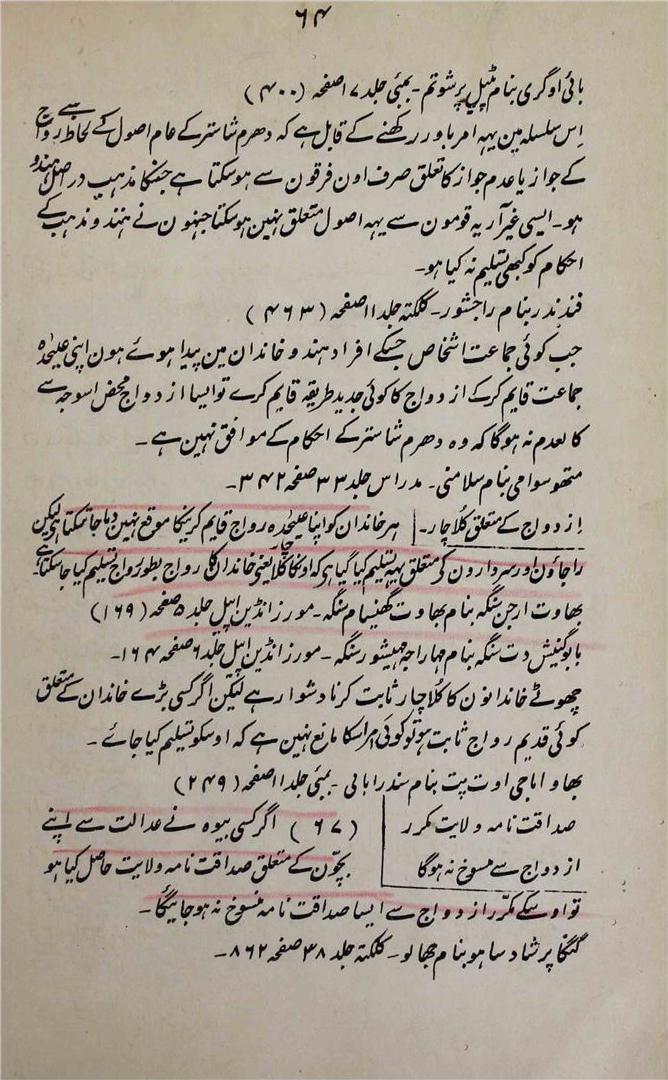 ۶۴
بائی اوگری بنام ٹپیل پرشوتم - بمبئی جلد ۱۷ صفحہ (۴۰۰)
اِس سلسلہ مین یہہ امر باور رکھنے کے قابل ہے کہ دھرم شاستر کے عام اصول کے لحاظ رواج
کے جواز یا عدم جواز کا تعلق صرف اون فرقون سے ہوسکتا ہے جنکا مذہب در اصل ہندو
ہو - ایسی غیر آریہ قومون سے یہہ اصول متعلق نہین ہوسکتا جنہون نے ہندو مذہب کے
احکام کو کبھی تسلیم نہ کیا ہو -
فندندر بنام راجشور - کلکتہ جلد ۱۱ صفحہ (۴۶۳)
جب کوئی جماعت اشخاص جسکے افراد ہندو خاندان مین پیدا ہوئے ہون اپنی علیحدہ
جماعت قایم کرکے ازدواج کا کوئی جدید طریقہ قایم کرے تو ایسا ازدواج محض اسوجہ سے
کالعدم نہ ہوگا کہ وہ دھرم شاستر کے احکام کے موافق نہین ہے -
متھوسوامی بنام سلامنی - مدراس جلد ۳۳ صفحہ ۳۴۲ -
ازدواج کے متعلق کُلاچار - ہر خاندان کو اپنا علیحدہ رواج قایم کرنیکا موقع نہین دیا جاسکتا ہی لیکن
راجاؤن اور سردارون کے متعلق یہہ تسلیم کیا گیا ہی کہ اونکا کُلاچار یعنی خاندان کا رواج بطور رواج تسلیم کیا جاسکتا ہے
بھاوت ارجن سنگہ بنام بھاوت گھنسیام سنگہ - مورز انڈین اپیل جلد ۵ صفحہ (۱۶۹)
بابو گنیش دت سنگہ بنام مہاراجہ مہیشور سنگہ - مورز انڈین اپیل جلد ۶ صفحہ ۱۶۴ -
چھوٹے خاندانون کا کُلاچار ثابت کرنا دشوار ہے لیکن اگر کسی بڑے خاندان کے متعلق
کوئی قدیم رواج ثابت ہو تو کوئی امر اسکا مانع نہین ہے کہ اوسکو تسلیم کیا جائے -
بھاو اناجی اوت پت بنام سندرابائی - بمبئی جلد ۱۱ صفحہ (۲۴۹)
صداقت نامہ ولایت مکرر
ازدواج سے منسوخ نہ ہوگا
(۶۷) اگر کسی بیوہ نے عدالت سے اپنے
بچّون کے متعلق صداقت نامہ ولایت حاصل کیا ہو
تو اوسکے مکرّر ازدواج سے ایسا صداقت نامہ منسوخ نہ ہوجائیگا -
گنگا پرشاد ساہو بنام جھالو - کلکتہ جلد ۳۸ صفحہ ۸۶۲ -